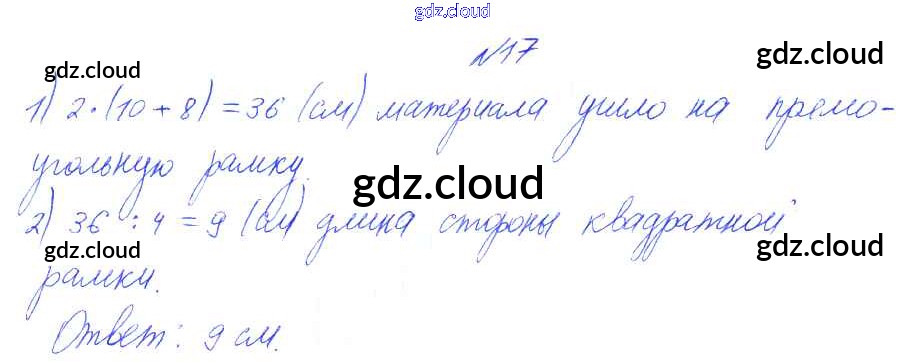 gdz.cloud
№17
gdz.cloud gdz.cloud
1) 2·(10+8)=36 (см) материала ушло на прямо-
угольную рамку.
gdz.cloud
2) 36 : 4 = 9 (см) длина стороны квадратной
gdz.cloud gdz.cloud
рамки.
Ответ: 9 см.
gdz.cloud gdz.cloud